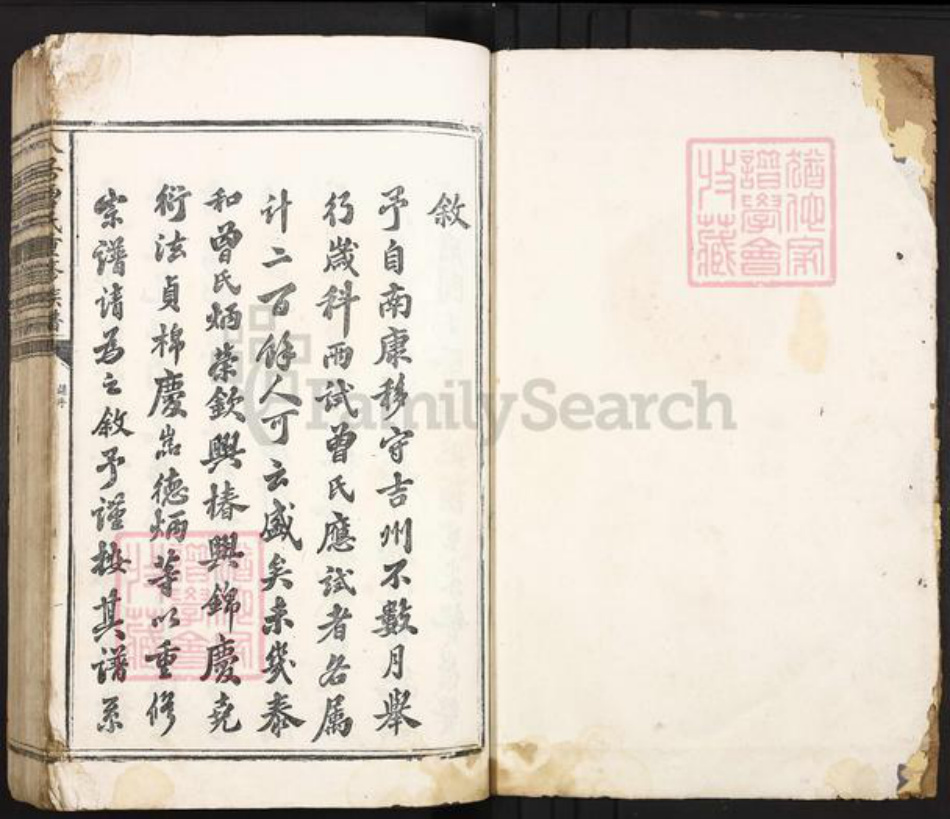 敘
予自南康移守吉州不數月舉
行歲科兩試曾氏應試者名屬
計二百餘人可云盛矣未幾泰
和曾氏炳榮欽興椿興錦慶堯
衍法貞棉慶嵩德炳等以重修
宗譜請為之敘予謹按其譜系
譜序
譜學會
收藏
FamilySearch